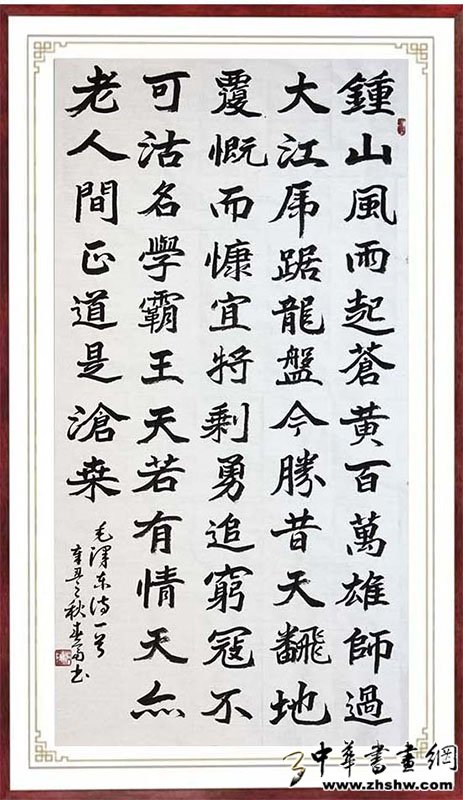 鍾山風雨起蒼黃百萬雄師過
大江虎踞龍盤今勝昔天飜地
覆慨而慷宜将剩勇追窮冦不
可沽名學霸王天若有情天亦
老人間正道是滄桒
毛澤东诗一首
辛丑之秋 书
中華書畫網
www.zhshw.com